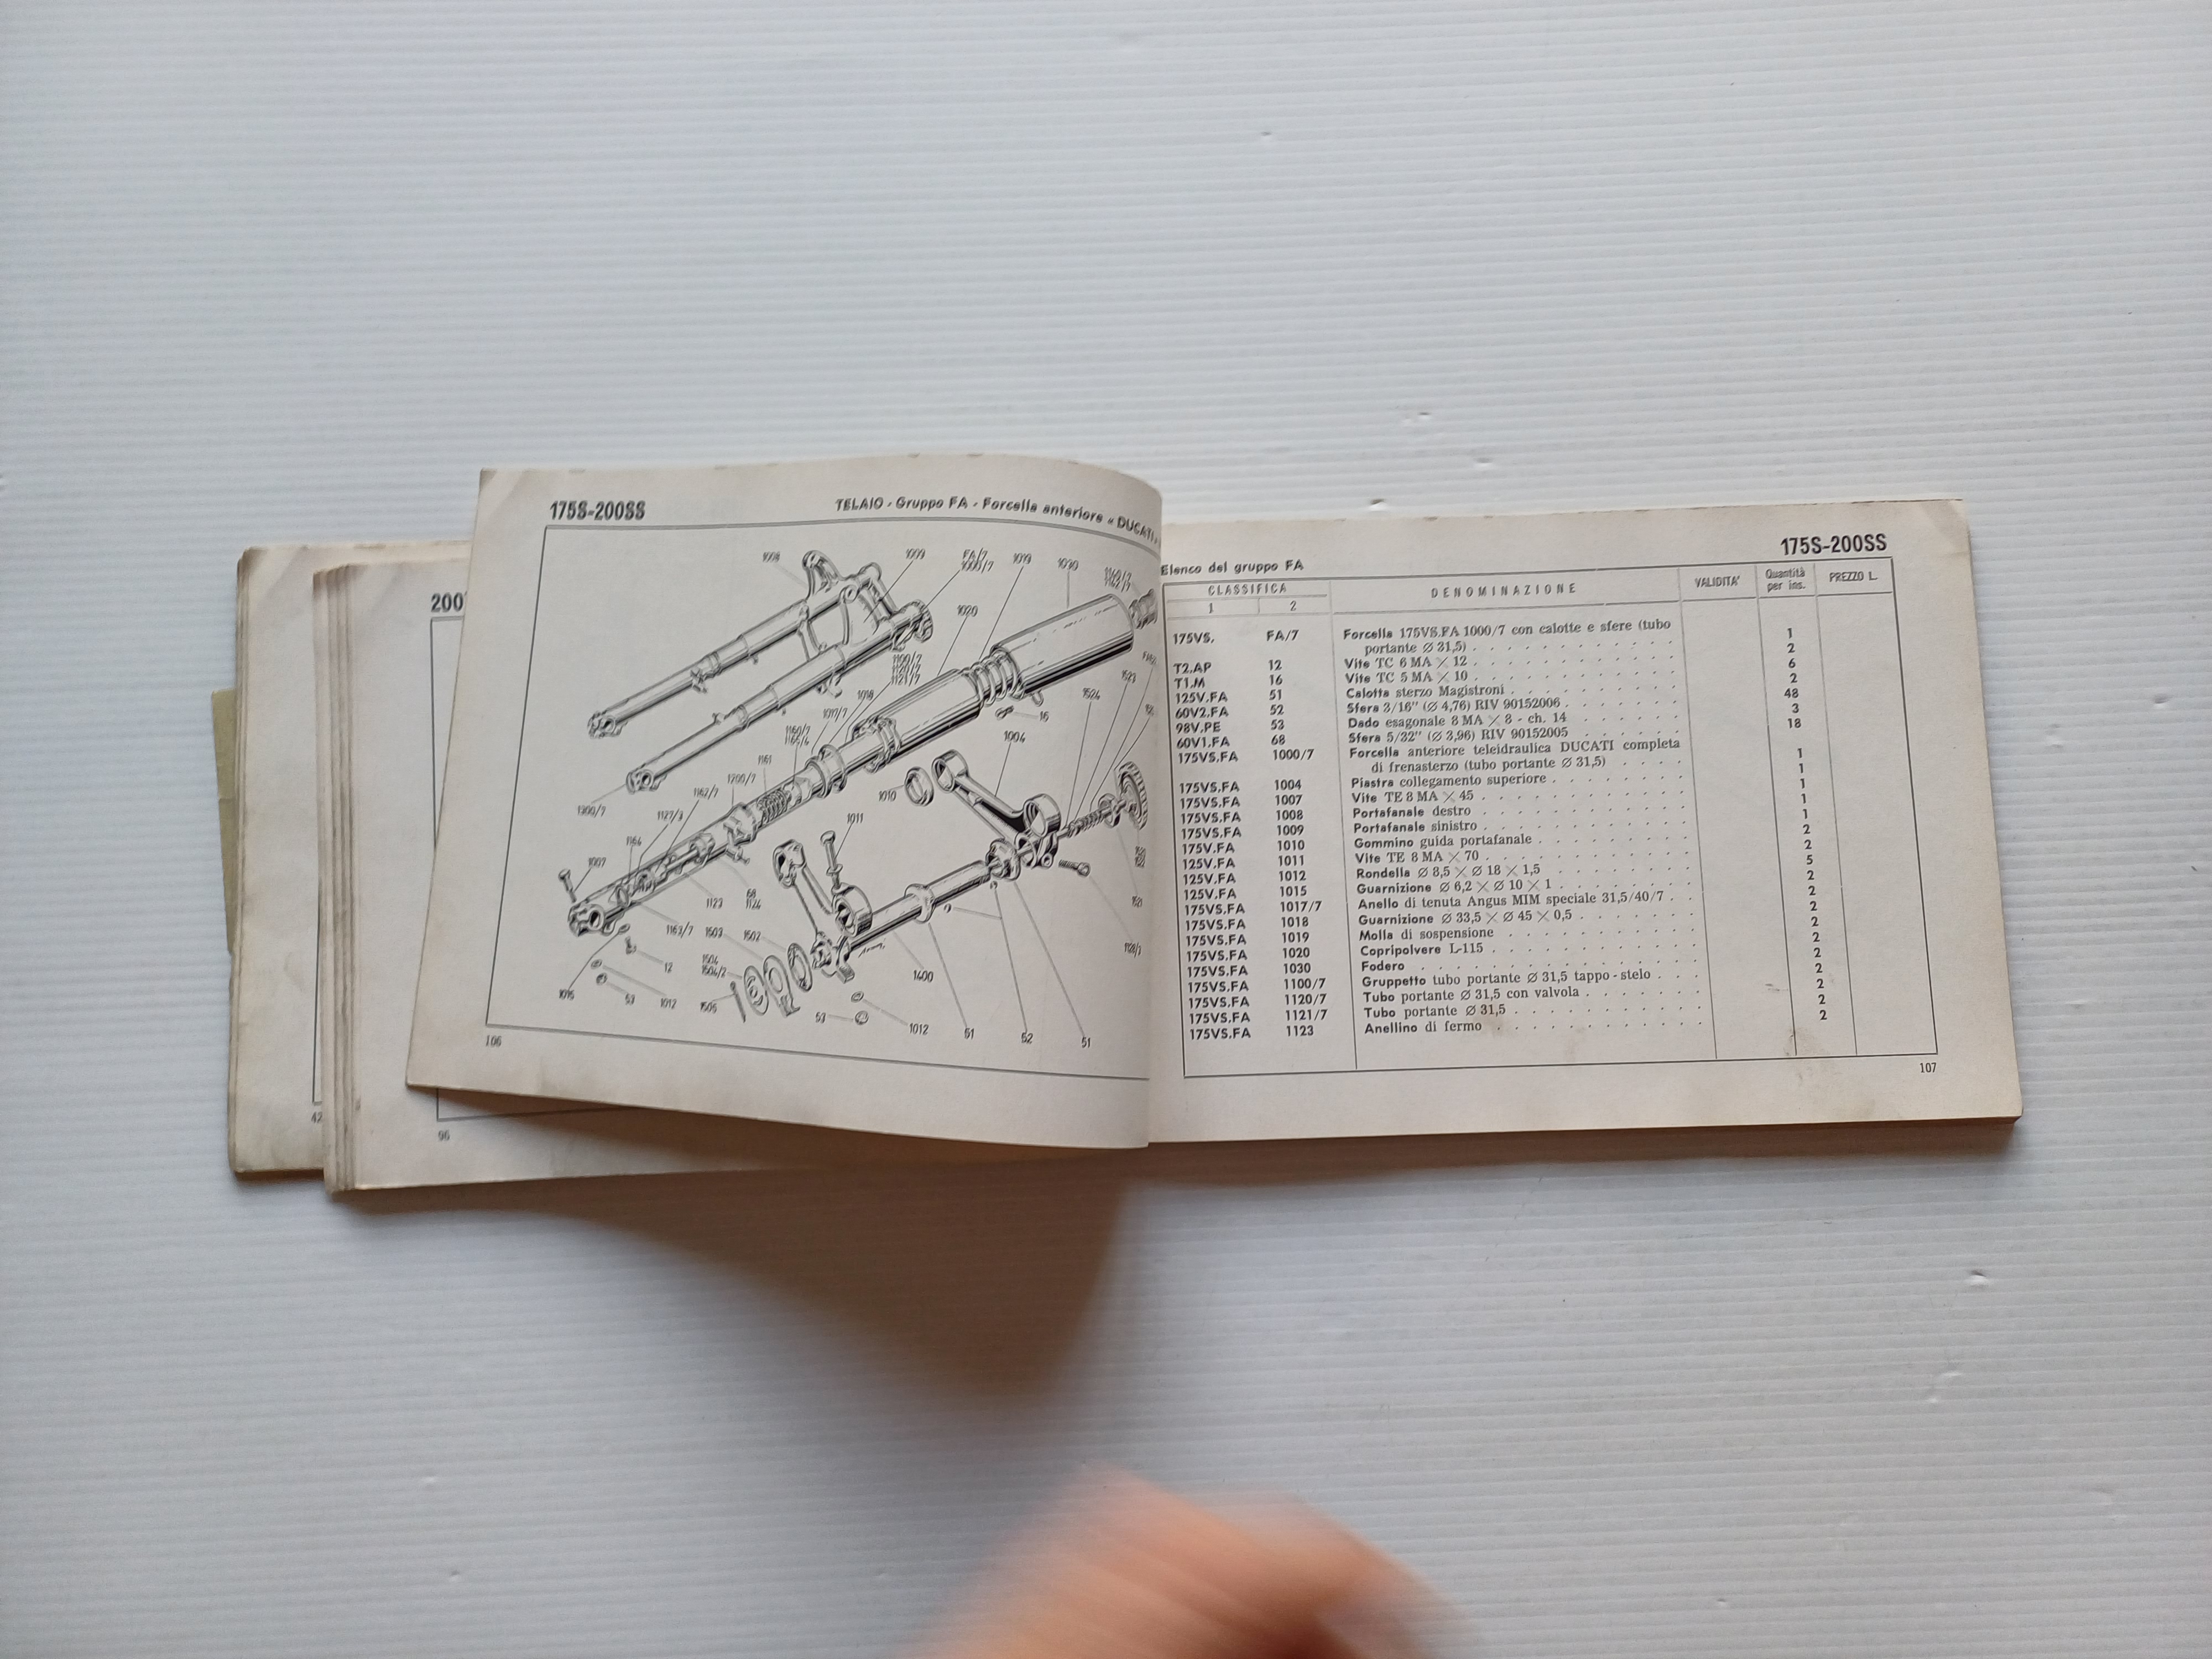 200
42
96
175S-200SS
TELAIO - Gruppo FA - Forcella anteriore « DUCATI »
1008
1009
FA/7
1000/7
1019
1030
1020
1121/7
1018
1017/7
16
1524
1523
1004
1160/7
1161
1200/7
1162/7
1127/3
1164
1300/7
1007
1010
1011
68
1124
1123
1163/7
1503
1502
1504
1504/2
1505
12
1015
53
1012
1400
53
1012
51
52
51
1521
106
175S-200SS
Elenco del gruppo FA
CLASSIFICA
1 2
DENOMINAZIONE
VALIDITA'
Quantità
per ins.
PREZZO L.
175VS. FA/7 Forcella 175VS.FA 1000/7 con calotte e sfere (tubo
portante Ø 31,5) . . . . . . . . . . . . . 1
T2.AP 12 Vite TC 6 MA × 12 . . . . . . . . . . . . . 2
T1.M 16 Vite TC 5 MA × 10 . . . . . . . . . . . . . 6
125V.FA 51 Calotta sterzo Magistroni . . . . . . . . . . 2
60V2.FA 52 Sfera 3/16" (Ø 4,76) RIV 90152006 . . . . . . . 48
98V.PE 53 Dado esagonale 8 MA × 8 - ch. 14 . . . . . . . 3
60V1.FA 68 Sfera 5/32" (Ø 3,96) RIV 90152005 . . . . . . . 18
175VS.FA 1000/7 Forcella anteriore teleidraulica DUCATI completa
di frenasterzo (tubo portante Ø 31,5) . . . . 1
175VS.FA 1004 Piastra collegamento superiore . . . . . . . . 1
175VS.FA 1007 Vite TE 8 MA × 45 . . . . . . . . . . . . . 1
175VS.FA 1008 Portafanale destro . . . . . . . . . . . . . 1
175VS.FA 1009 Portafanale sinistro . . . . . . . . . . . . 1
175V.FA 1010 Gommino guida portafanale . . . . . . . . . . 2
125V.FA 1011 Vite TE 8 MA × 70 . . . . . . . . . . . . . 2
125V.FA 1012 Rondella Ø 8,5 × Ø 18 × 1,5 . . . . . . . . . 5
125V.FA 1015 Guarnizione Ø 6,2 × Ø 10 × 1 . . . . . . . . 2
175VS.FA 1017/7 Anello di tenuta Angus MIM speciale 31,5/40/7 . . 2
175VS.FA 1018 Guarnizione Ø 33,5 × Ø 45 × 0,5 . . . . . . . 2
175VS.FA 1019 Molla di sospensione . . . . . . . . . . . . 2
175VS.FA 1020 Copripolvere L-115 . . . . . . . . . . . . . 2
175VS.FA 1030 Fodero . . . . . . . . . . . . . . . . . . 2
175VS.FA 1100/7 Gruppetto tubo portante Ø 31,5 tappo-stelo . . . 2
175VS.FA 1120/7 Tubo portante Ø 31,5 con valvola . . . . . . . 2
175VS.FA 1121/7 Tubo portante Ø 31,5 . . . . . . . . . . . . 2
175VS.FA 1123 Anellino di fermo . . . . . . . . . . . . . 2
107